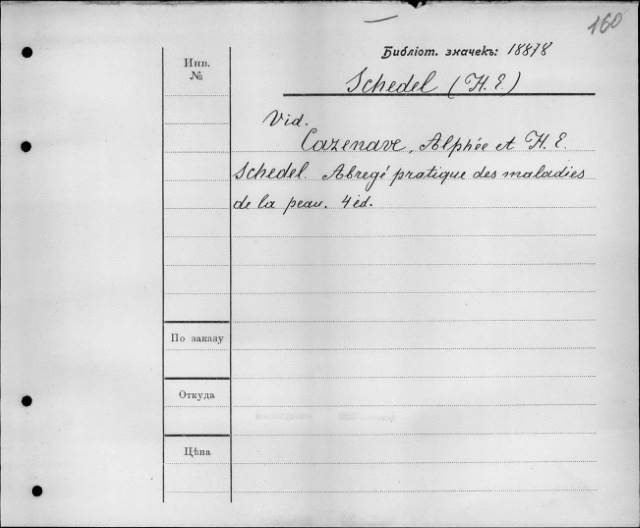 160
Библіот. значекъ: 18878
Инв.
№
Schedel (H. E.)
Vid.
Cazenave, Alphée et H. E.
Schedel. Abregé pratique des maladies
de la peau. 4 éd.
По заказу
Откуда
Цѣна